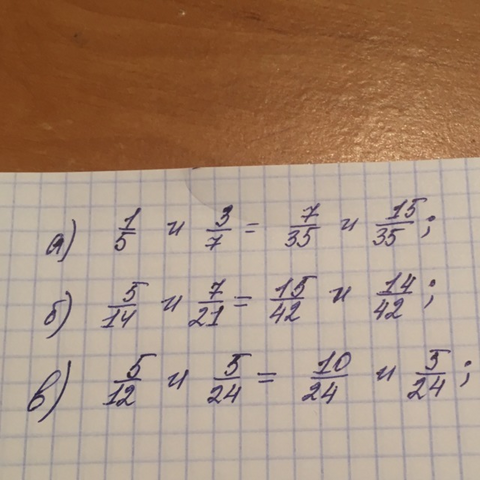 а) 1/5 и 3/7 = 7/35 и 15/35;
б) 5/14 и 7/21 = 15/42 и 14/42;
в) 5/12 и 5/24 = 10/24 и 5/24;